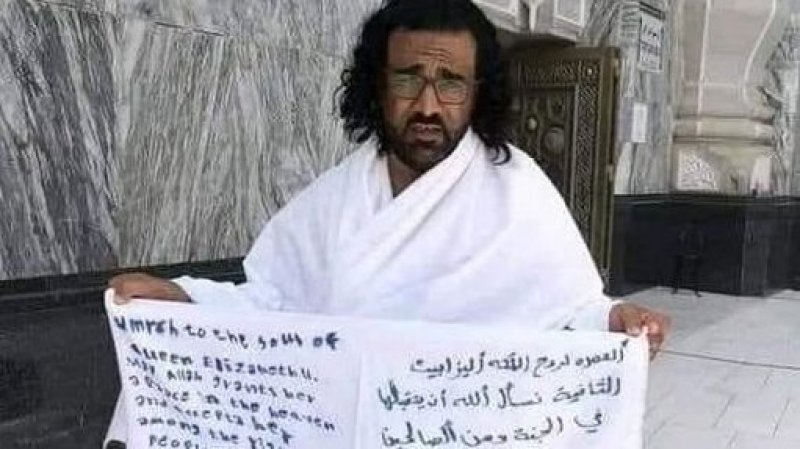 umrah to the soul of
Queen Elizabeth II.
may Allah grants her
a place in the heaven
and accepts her
among the
People
العمره لروح الملكه اليزابيث
الثانية نسأل الله ان يتقبلها
في الجنة ومن الصالحين